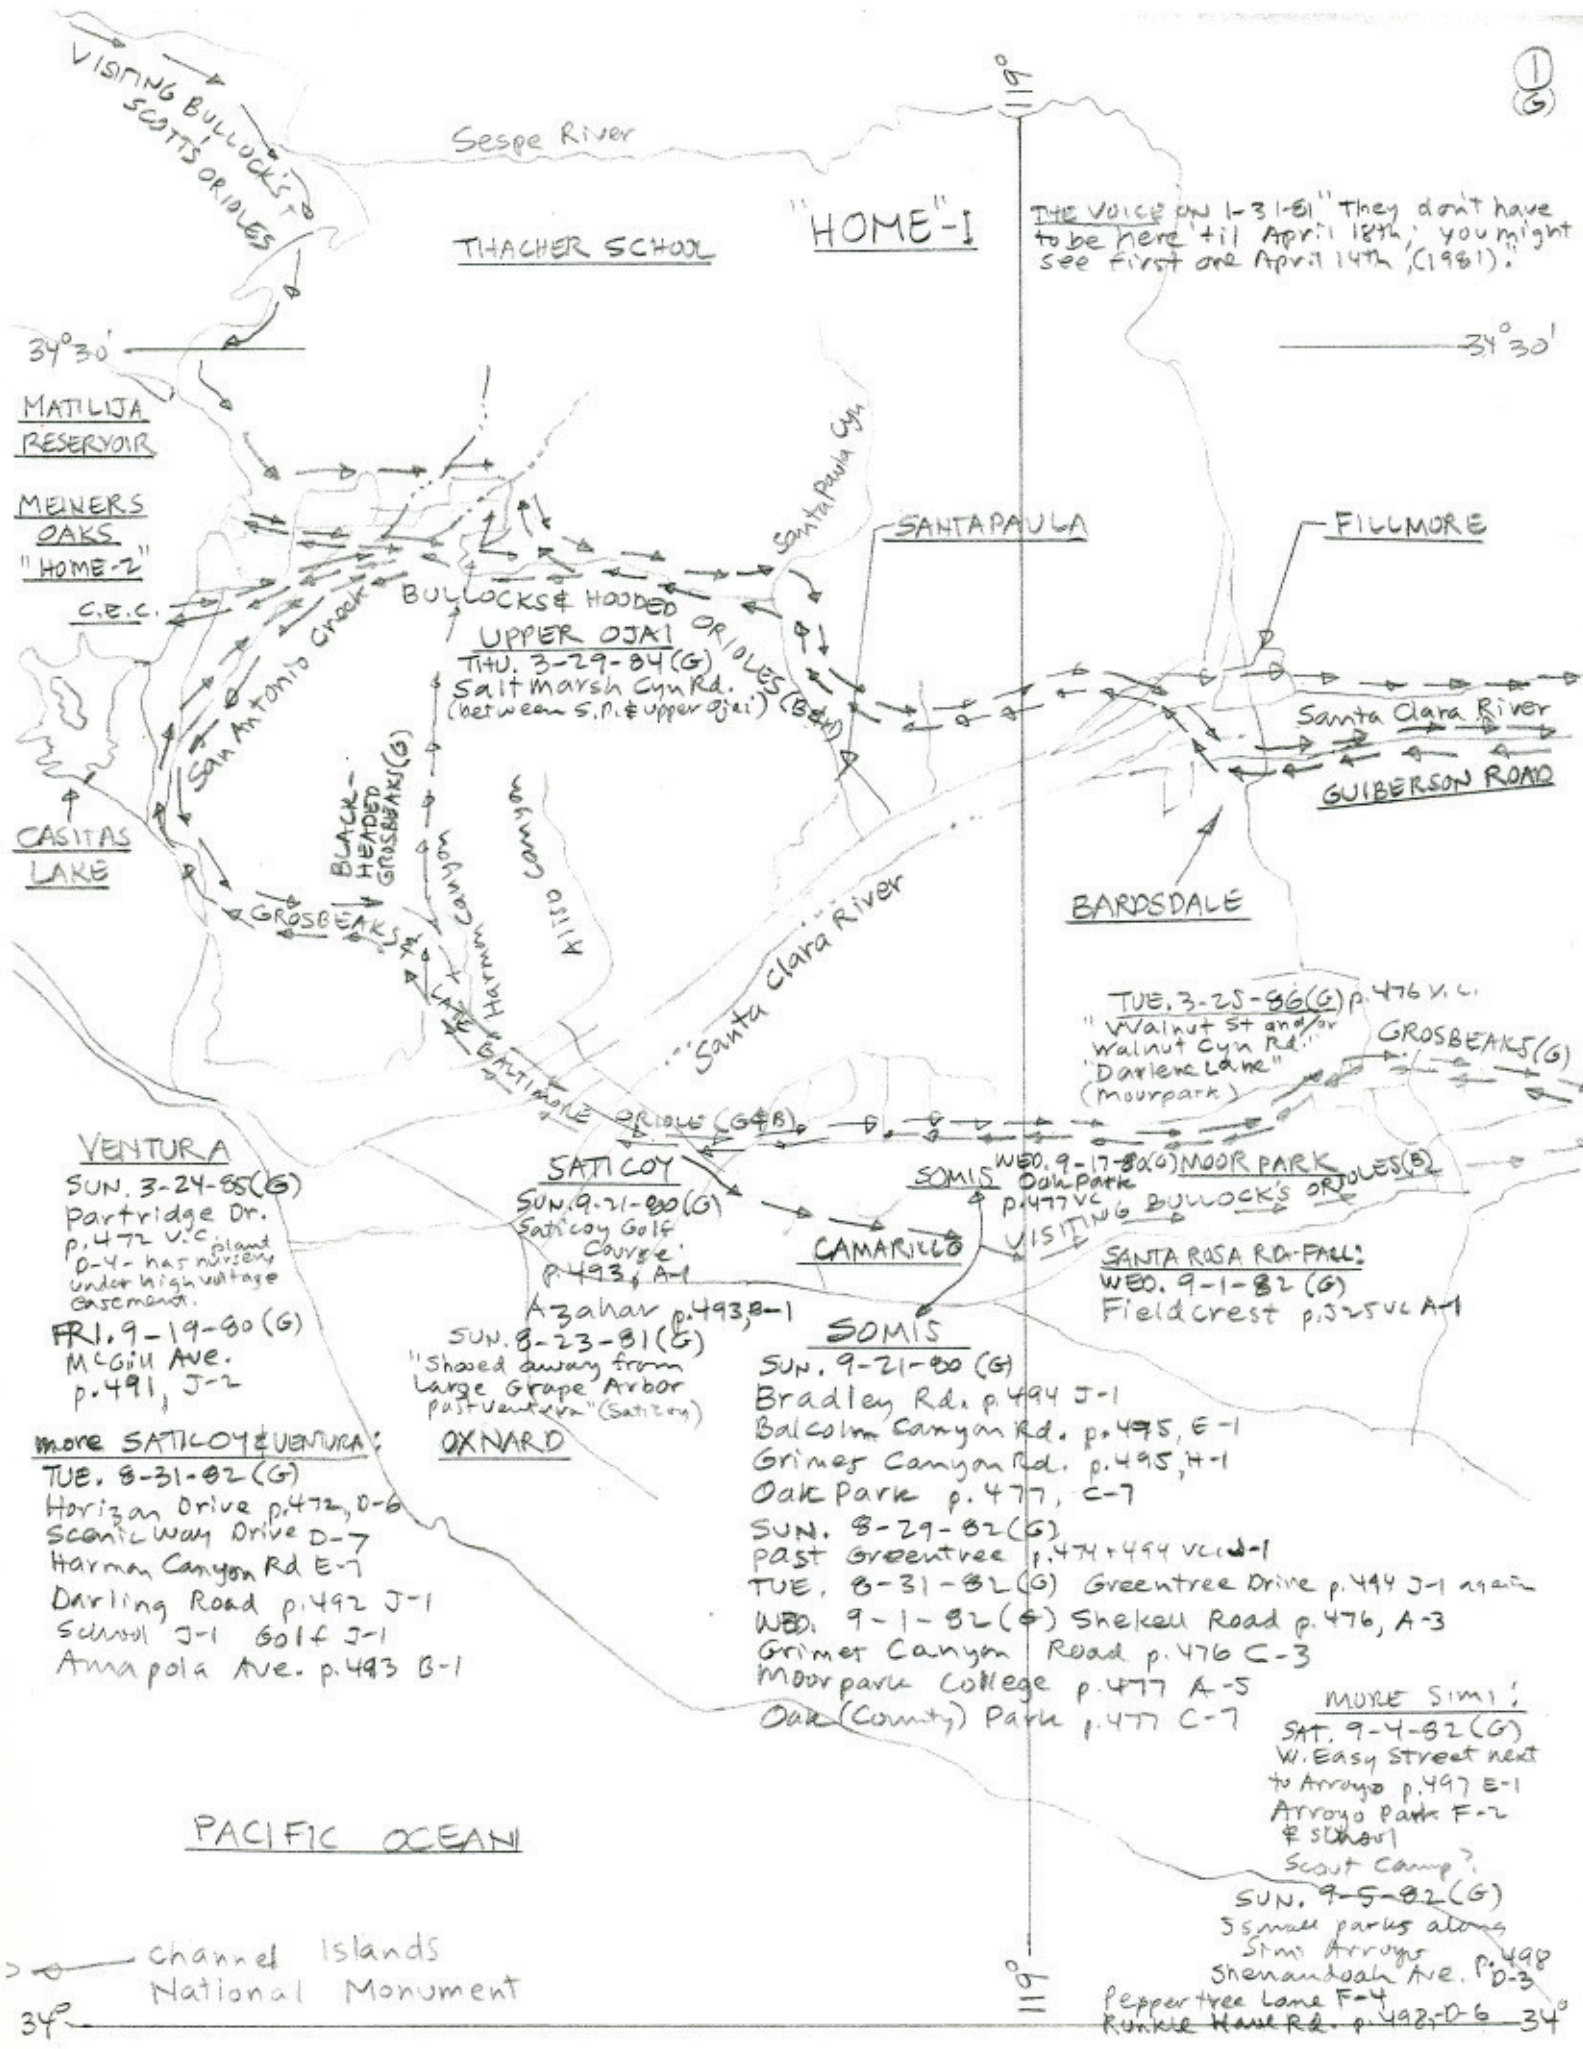 1
G
VISITING BULLOCK'S +
SCOTT'S ORIOLES
Sespe River
119°
THACHER SCHOOL
"HOME"-1
THE VOICE ON 1-31-81 "They don't have
to be here 'til April 18th; you might
see first one April 14th, (1981)."
34°30'
34°30'
MATILIJA
RESERVOIR
MEINERS
OAKS
"HOME-2"
C.E.C.
Santa Paula Cyn
SANTA PAULA
FILLMORE
San Antonio Creek
BULLOCKS & HOODED ORIOLES (B&H)
UPPER OJAI
THU. 3-29-84 (G)
Salt marsh Cyn Rd.
(between S.P. & upper Ojai)
Santa Clara River
GUIBERSON ROAD
CASITAS
LAKE
BLACK-
HEADED
GROSBEAKS (G)
Harmon Canyon
Canyon
Aliso Canyon
Santa Clara River
BARDSDALE
GROSBEAKS &
BALTIMORE ORIOLE (G&B)
TUE. 3-25-86 (G) p.476 V.C.
"Walnut St and/or
Walnut Cyn Rd."
"Darlene Lane"
(Moorpark)
GROSBEAKS (G)
VENTURA
SUN. 3-24-85 (G)
Partridge Dr.
p.472 V.C.
D-4- has nursery plant
under high voltage
easement.
FRI. 9-19-80 (G)
McGill Ave.
p.491, J-2
SATICOY
SUN. 9-21-80 (G)
Saticoy Golf
Course
p.493, A-1
Azahar p.493, B-1
SUN. 8-23-81 (G)
"Shooed away from
Large Grape Arbor
past Ventura" (Saticoy)
OXNARD
SOMIS
WED. 9-17-80 (G) MOORPARK
Oak Park
p.477 VC
VISITING BULLOCK'S ORIOLES (B)
CAMARILLO
SANTA ROSA RD-FALL:
WED. 9-1-82 (G)
Fieldcrest p.525 VC A-1
more SATICOY & VENTURA:
TUE. 8-31-82 (G)
Horizon Drive p.472, D-6
Scenic Way Drive D-7
Harmon Canyon Rd E-7
Darling Road p.492 J-1
School J-1 Golf J-1
Amapola Ave. p.493 B-1
SOMIS
SUN. 9-21-80 (G)
Bradley Rd. p.494 J-1
Balcolm Canyon Rd. p.495, E-1
Grimes Canyon Rd. p.495, H-1
Oak Park p.477, C-7
SUN. 8-29-82 (G)
past Greentree p.474 + 494 VC J-1
TUE. 8-31-82 (G) Greentree Drive p.494 J-1 again
WED. 9-1-82 (G) Shekell Road p.476, A-3
Grimes Canyon Road p.476 C-3
Moorpark College p.477 A-5
Oak (County) Park p.477 C-7
MORE SIMI:
SAT. 9-4-82 (G)
W. Easy Street next
to Arroyo p.497 E-1
Arroyo Park F-2
& School
Scout Camp?
SUN. 9-5-82 (G)
5 small parks along
Simi Arroyo
Shenandoah Ave. p.498
D-3
Peppertree Lane F-4
Runkle Haul Rd. p.498, D-6
PACIFIC OCEAN
Channel Islands
National Monument
34°
119°
34°